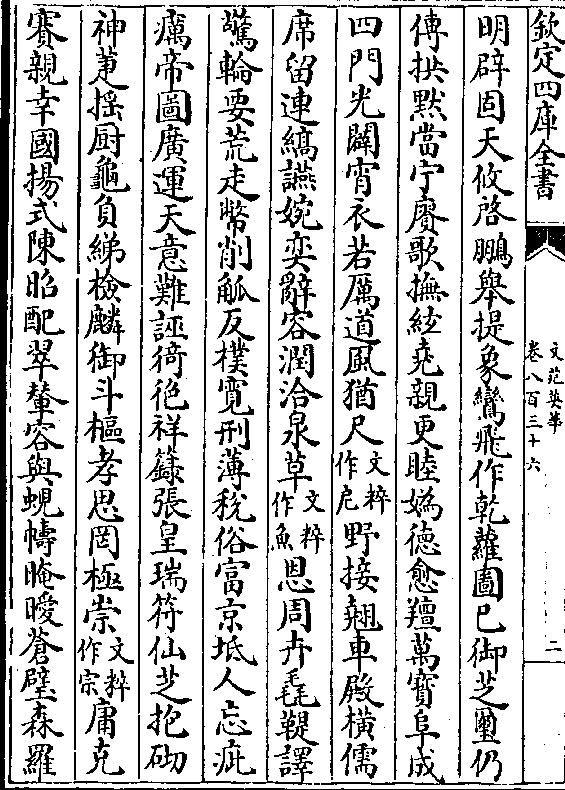 欽定四庫全書
文苑英華
卷八百三十六
二
明辟固天攸啓鵬舉提象鸞飛作乾蘿圖已御芝璽仍
傳拱默當宁賡歌撫絃堯親更睦媯德愈羶萬寳阜成
四門光闢宵衣若厲道風猶尺文粹作咫野接翹車殿橫儒
席留連縞讌婉奕辭容潤洽泉草文粹作魚恩周卉毳鞮譯
驚輪要荒走幣削觚反樸寛刑薄稅俗富京坻人忘疵
癘帝圖廣運天意難諲徛㣲祥籙張皇瑞符仙芝抱砌
神萐揺厨龜負綈檢麟御斗樞孝思罔極崇文粹作宗庸克
賽親幸國揚式陳昭配翠輦容與蜺幬晻曖蒼壁森羅